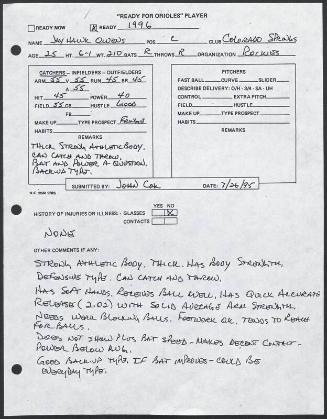 "READY FOR ORIOLES" PLAYER
READY NOW
READY 1996
NAME JAYHAWK OWENS POS C CLUB COLORADO SPRINGS
AGE 25 HT 6-1 WT 210 BATS R THROWS R ORGANIZATION ROCKIES
CATCHERS - INFIELDERS - OUTFIELDERS
ARM 55 V 55 RUN 45 OR 45
55
HIT 45 POWER 40
FIELD 55 OR HUSTLE GOOD
FB
MAKE-UP TYPE PROSPECT FRINGE
HABITS
REMARKS
THICK STRONG ATHLETIC BODY.
CAN CATCH AND THROW.
BAT AND POWER A QUESTION.
BACKUP TYPE.
PITCHERS
FAST BALL CURVE SLIDER
DESCRIBE DELIVERY: O/H - 3/4 - SA - UH
CONTROL EXTRA PITCH
FIELD HUSTLE
MAKE-UP TYPE PROSPECT
HABITS
REMARKS
SUBMITTED BY: JOHN COX DATE: 7/26/95
YES NO
HISTORY OF INJURIES OR ILLNESS - GLASSES X
CONTACTS
NONE
OTHER COMMENTS IF ANY:
STRONG ATHLETIC BODY, THICK. HAS BODY STRENGTH.
DEFENSIVE TYPE. CAN CATCH AND THROW.
HAS SOFT HANDS, RECEIVES BALL WELL. HAS QUICK ACCURATE
RELEASE (2.03) WITH SOLID AVERAGE ARM STRENGTH.
NEEDS WORK BLOCKING BALLS. FOOTWORK OK. TENDS TO REACH
FOR BALLS.
DOES NOT SHOW PLUS BAT SPEED - MAKES DECENT CONTACT -
POWER BELOW AVG.
GOOD BACK-UP TYPE. IF BAT IMPROVES - COULD BE
EVERYDAY TYPE.